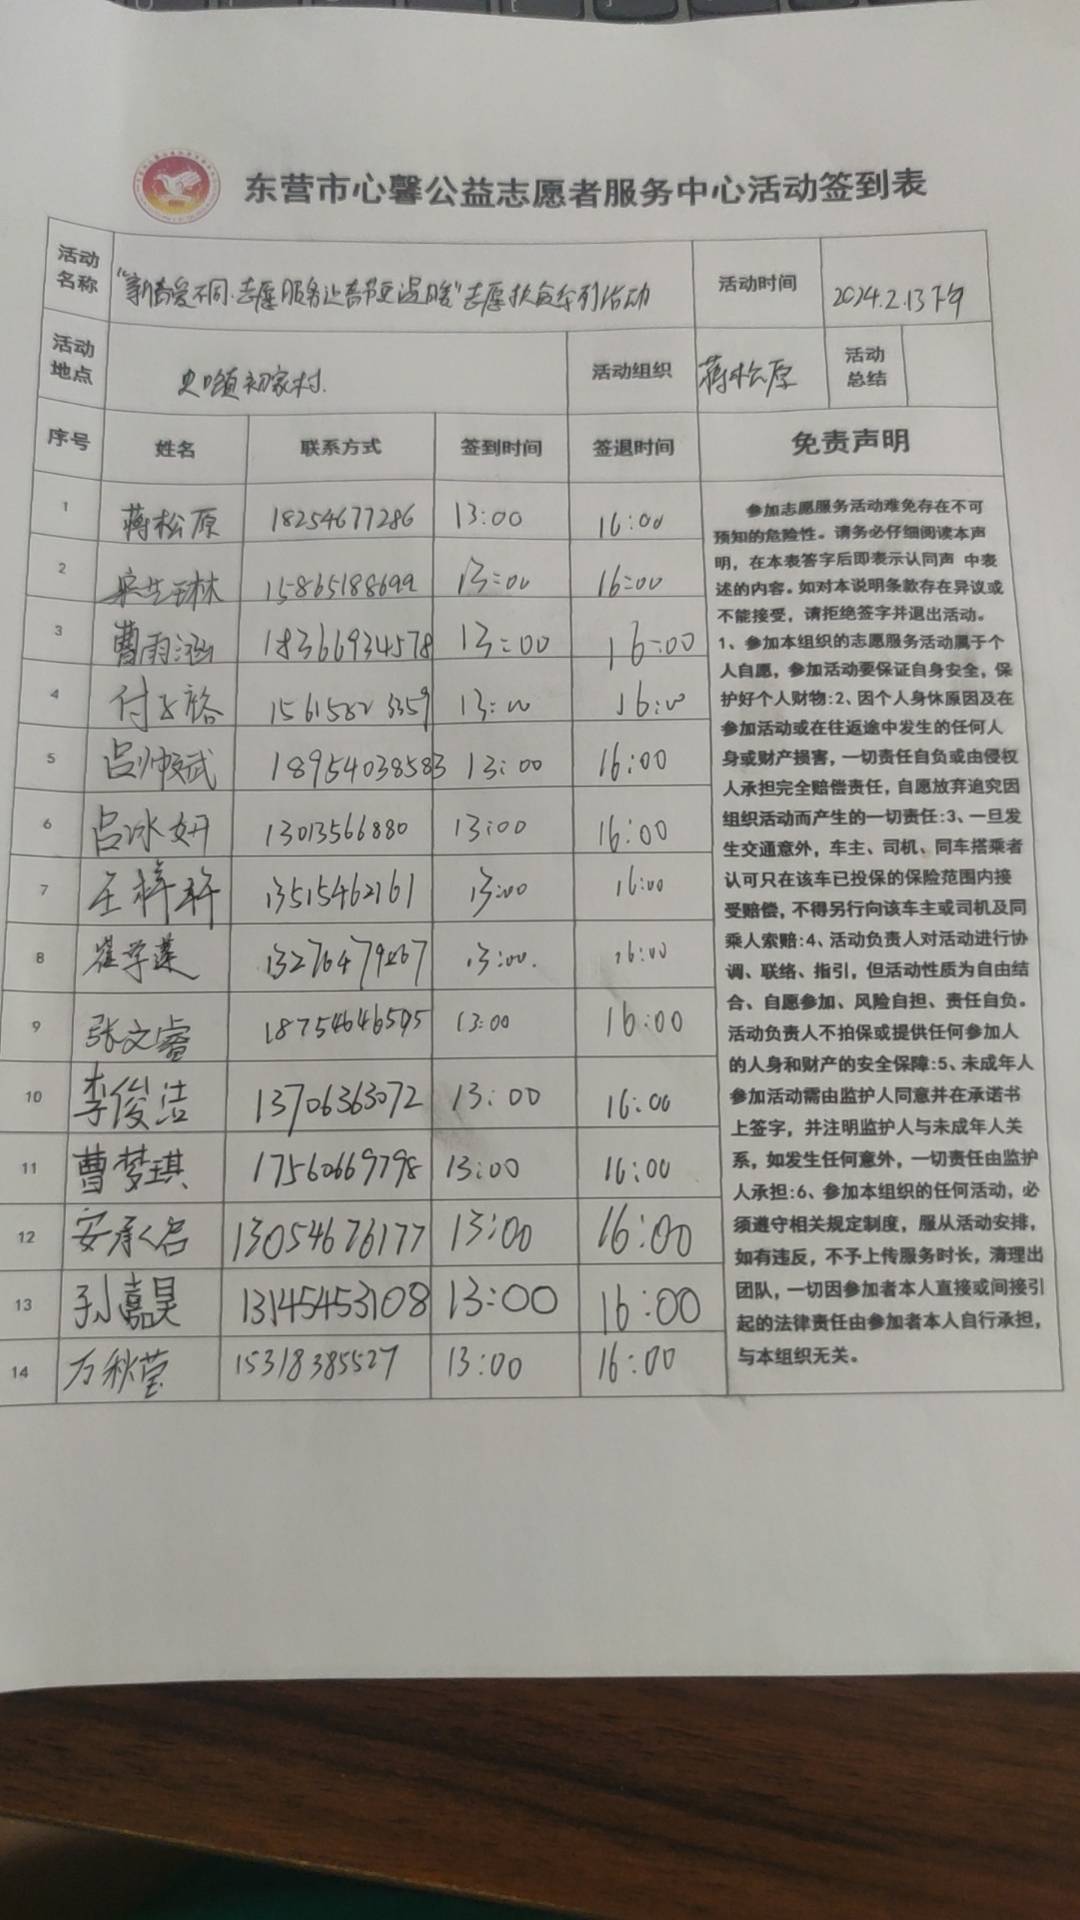 东营市心馨公益志愿者服务中心活动签到表
活动名称 "新春爱不同·志愿服务让春节更温暖"志愿扶贫系列活动 活动时间 2024.2.13下午
活动地点 史口镇初家村. 活动组织 蒋松原 活动总结
序号 姓名 联系方式 签到时间 签退时间 免责声明
1 蒋松原 18254677286 13:00 16:00
2 15865188699 13:00 16:00
3 曹雨涵 18366934578 13:00 16:00
4 13:00 16:00
5 吕帅斌 18954038583 13:00 16:00
6 吕冰妍 13013566880 13:00 16:00
7 王梓轩 13515462161 13:00 16:00
8 崔学莲 13:00. 16:00
9 张文睿 13:00 16:00
10 李俊洁 13706363072 13:00 16:00
11 曹梦琪 17560669798 13:00 16:00
12 安承名 13054676177 13:00 16:00
13 孙嘉昊 13145453108 13:00 16:00
14 万秋莹 15318385527 13:00 16:00
参加志愿服务活动难免存在不可
预知的危险性。请务必仔细阅读本声
明，在本表答字后即表示认同声 中表
述的内容。如对本说明条款存在异议或
不能接受，请拒绝签字并退出活动。
1、参加本组织的志愿服务活动属于个
人自愿，参加活动要保证自身安全，保
护好个人财物:2、因个人身休原因及在
参加活动或在往返途中发生的任何人
身或财产损害，一切责任自负或由侵权
人承担完全赔偿责任，自愿放弃追究因
组织活动而产生的一切责任:3、一旦发
生交通意外，车主、司机、同车搭乘者
认可只在该车已投保的保险范围内接
受赔偿，不得另行向该车主或司机及同
乘人索赔:4、活动负责人对活动进行协
调、联络、指引，但活动性质为自由结
合、自愿参加、风险自担、责任自负。
活动负责人不拍保或提供任何参加人
的人身和财产的安全保障:5、未成年人
参加活动需由监护人同意并在承诺书
上签字，并注明监护人与未成年人关
系，如发生任何意外，一切责任由监护
人承担:6、参加本组织的任何活动，必
须遵守相关规定制度，服从活动安排，
如有违反，不予上传服务时长，清理出
团队，一切因参加者本人直接或间接引
起的法律责任由参加者本人自行承担，
与本组织无关。